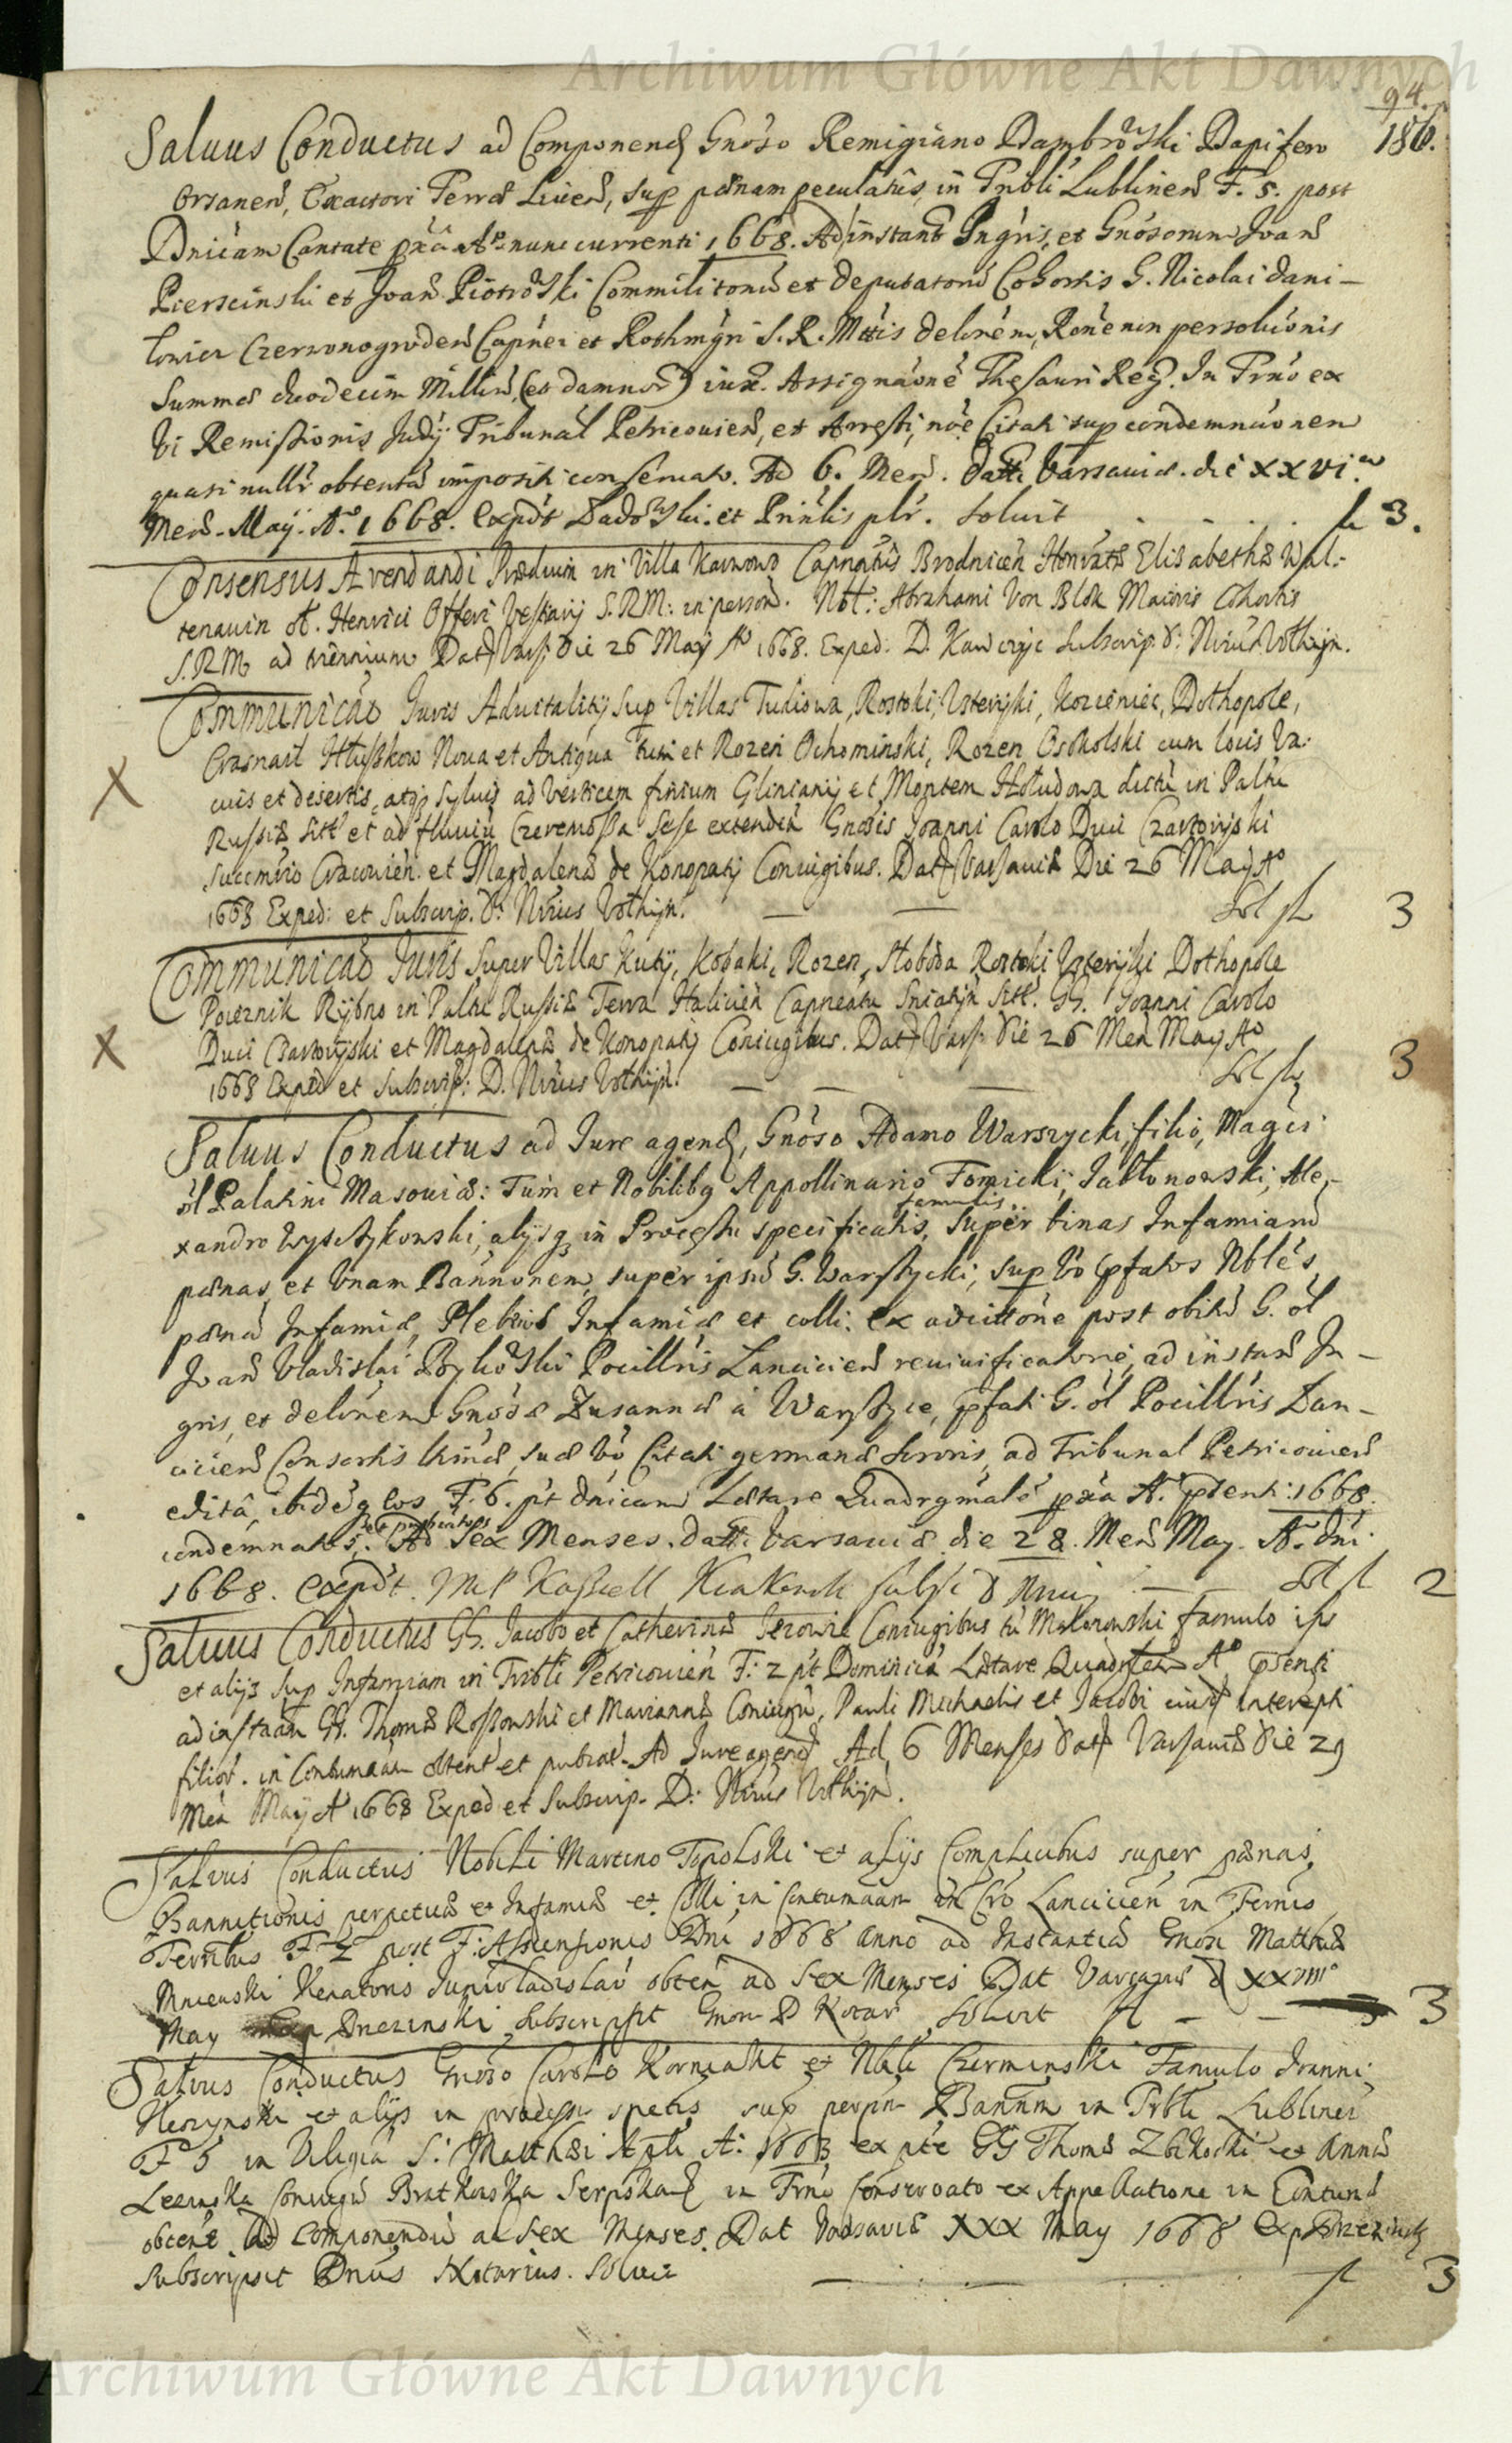 Archiwum Główne Akt Dawnych
94.
186.
Saluus Conductus ad Componend Gnoso Remigiano Dambrowski Dapifero
Orsanen, Exactori Terrae Liuen, sup paenam peculatus in Tribli Lublinen F. 5. post
Dnicam Cantate pxa Ao nunc currenti 1668. Ad instant Ingris, et Gnosorum Joan
Pierscinski et Joan Piotrowski Commiliton et deputator Cohortis G. Nicolai Dani-
lowicz Czerwonogroden Capnei et Rothmgri S. R. Mttis delorem, Rone non persolucionis
Summae duodecim Millia, (et damnor) iux. Assignaone Thesauri Reg. In Trno ex
Vi Remissionis Judy Tribunal Petricouien, et Aresti, noe Citati sup condemnaonem
quasi nullr obtenta impositi conseruato. Ad 6. Men. Datt Varsauiae. die xxvi.
Men. May. Ao. 1668. Expdt Sadowski. et Prinlis plr. Soluit fl 3.
Consensus Arendandi Praedium in Villa Karwowo Capnatus Brodnicen Honratae Elisabethae Wal-
tenauin ol. Henrici Offeri Vestiarij S.RM: in person. Nbl: Abrahami Von Blok Maioris Cohortis
S.RM ad triennium Dat Vars. die 26 May Ao 1668. Exped: D. Kawczyc Subscrip. d: Nrius Vothijn.
Communicao Juris Aduitalitij Sup Villas Tudiowa, Rostoki, Vsteryki, Kozieniec, Dothopole,
Crasnail Hluszkow Noua et Antiqua tum et Rozen Ochominski, Rozen Osokolski cum locis Va-
cuis et desertis, atq syluis ad Verticem finium Gliniany et Montem Holudowa dictu in Paltu
Russiae Sitt et ad fluuiu Czeremossa Sese extenden Gnosis Joanni Carolo Duci Czartoryski
Succmrio Cracouien. et Magdalenae de Konopaty Coniugibus. Dat Varsauiae Die 26 May Ao
1668 Exped: et Subscrip. D. Nrius Vothijn. Sol fl 3
Communicao Juris Super Villas Kuty, Kobaki, Rozen, Sloboda Rostoki Vsteryki Dothopole
Powznik Rybno in Paltu Russiae Terra Halicien Capneatu Sniatyn Sitt. GG. Joanni Carolo
Duci Czartoryski et Magdalenae de Konopaty Coniugibus. Dat Vars. die 26 Men May Ao
1668 Exped et Subscrip: D. Nrius Vothijn. Sol fl 3
Saluus Conductus ad Jure agend, Gnoso Adamo Warszycki, filio, Magci
ol Palatini Masouiae: Tum et Nobilibq Appollinario Tomicki, Jablonowski, Ale-
famulis
xandro Wysczkowski, alysq in Processu specificatis, super binas Infamiam
paenas, et Vnam Bannonem, super ipsu G. Warszycki, sup Vo pfatos Nbles,
paena Infamiae, Plebis Infamiae et colli. ex adcittone post obitu G. ol
Joan Vladislai Bykowski Pocillris Lancicien reuiuificatorie, ad instan In-
gris, et delorem Gnosae Zusannae a Warszyce, pfati G. ol Pocillris Lan-
cicien Consortis ltimae, suae Vo Citati germanae sororis, ad Tribunal Petricouien
edita, ibideq eos F. 6. pt dnicam Laetare Quadrgmale pxa A. pdenti 1668.
et publicatos
condemnatos. Ad sex Menses. Datt. Varsauiae die 28. Men May. Ao. Dni
1668. Expdt. Sol fl 2
Saluus Conductus GG. Jacobo et Catherinae Jezowie Coniugibus tu Makorowski famulo ips
et alijs Sup Infamiam in Tribli Petricouien F: 2 pt Dominica Laetare Ao psenti
ad instaan GG. Thomae Rossowski et Mariannae Coniugu, Pauli Michaelis et Jacobi eiusd interempti
filior. in Contumaciam obtent et publicat. Ad Jure agend Ad 6 Menses dat Varsauiae die 29
Men May Ao 1668 Exped et Subscrip. D: Nrius Vothijn.
Salvus Conductus Nobili Martino Topolski et alijs Complicibus super paenas
Bannitionis perpetuae et Infamiae et Colli in Contumaciam in Cro Lancicien in Termis
Terrtbus F 2 post F: Assensionis Dni 1668 anno ad Instantia Gnosi Matthiae
Mniewski Venatoris Juniuladislau obten ad sex Menses Dat Varsaviae d xxviii
May Brezinski Subscripsit Gnon D Notar Soluit fl 3
Salvus Conductus Gnoso Carolo Korniakt et Nbili Czerminski Famulo Joanni
et alijs in processu spetis sup perpm Bannm in Trbli Lublinen
F 6 in Viligia S. Matthaei Apli A: 1663 ex pte GG Thomae Zbikoski et Annae
Lezenska Coniugu Bratkowska Serpska in Trno Conservato ex Appellatione in Contum
obtene ad componendu ad sex Menses. Dat Varsaviae XXX May 1668 Exp Brzezinski
Subscripsit Dnus Notarius. Soluit fl 3
Archiwum Główne Akt Dawnych